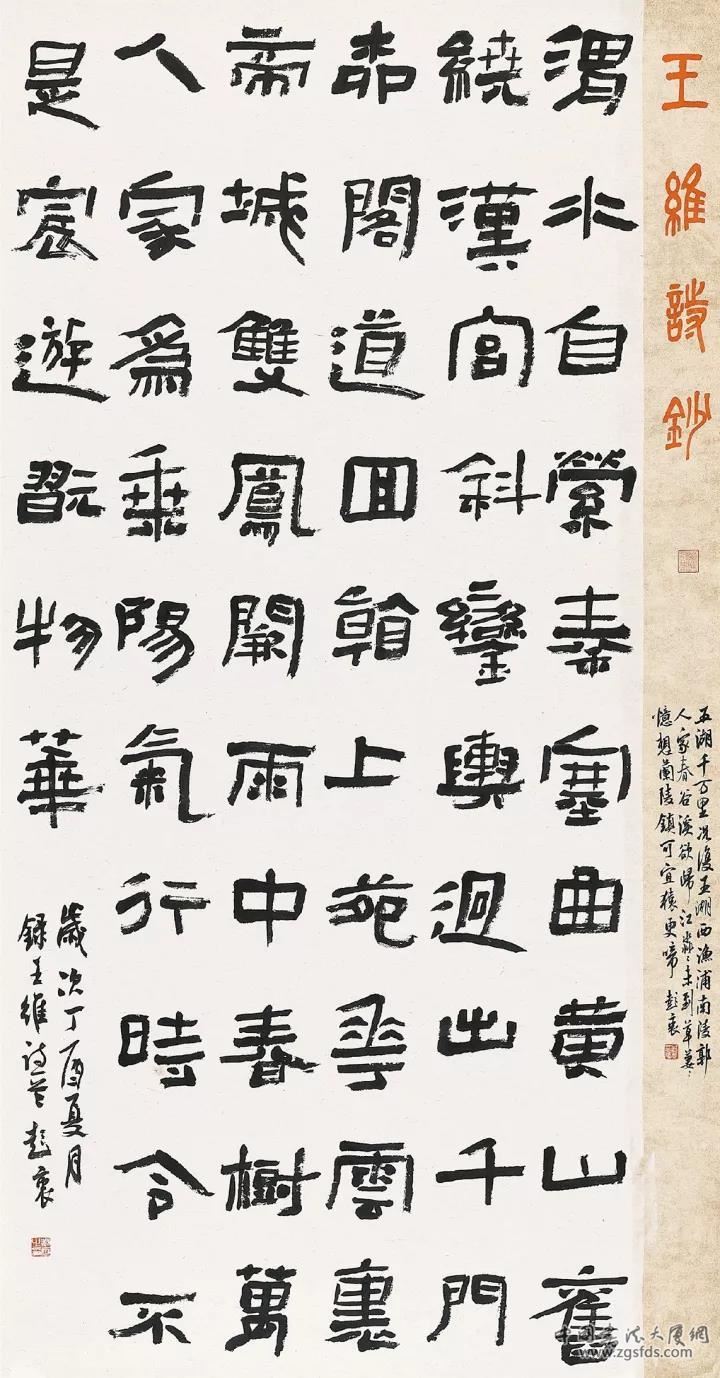 王維詩鈔
五湖千万里况復五湖西漁浦南陵郭
人家春谷溪欲歸江淼〻未到草萋〻
憶想蘭陵鎮可宜猿更啼
渭水自縈秦塞曲黄山舊
繞漢宫斜鑾輿迥出千門
柳閣道回看上苑花雲裏
帝城雙鳳闕雨中春樹萬
人家爲乘陽氣行時令不
是宸遊翫物華
歲次丁酉夏月
錄王維诗
www.zgsfds.com